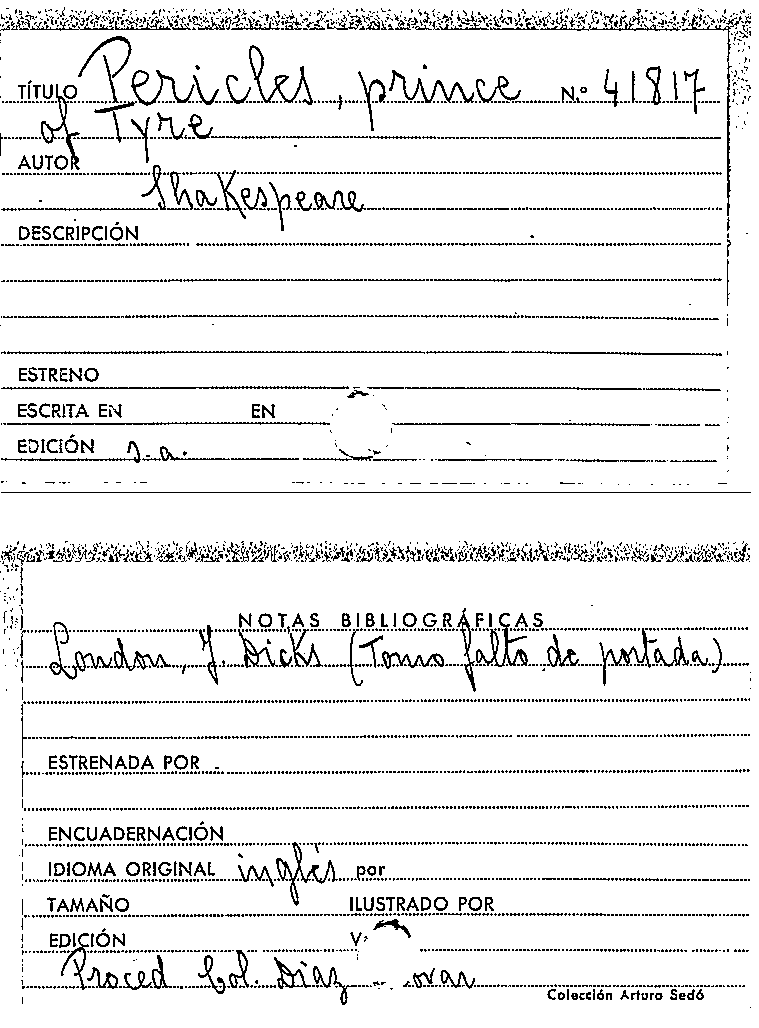 TÍTULO Pericles, prince N.º 41817
of Tyre
AUTOR
Shakespeare
DESCRIPCIÓN
ESTRENO
ESCRITA EN EN
EDICIÓN s.a.
NOTAS BIBLIOGRÁFICAS
London, J. Dicks (Tomo falto de portada)
ESTRENADA POR
ENCUADERNACIÓN
IDIOMA ORIGINAL inglés por
TAMAÑO ILUSTRADO POR
EDICIÓN
Proced Col. Díaz
Colección Arturo Sedó